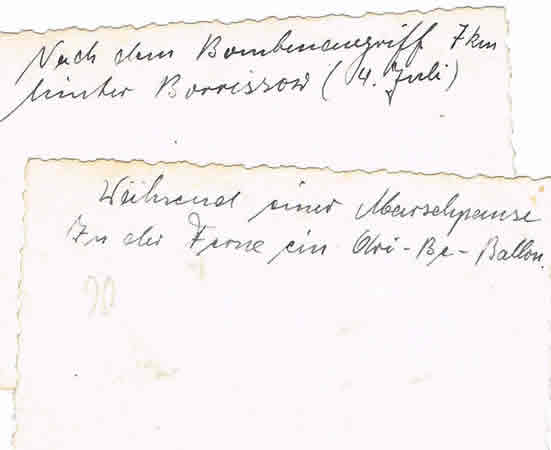 Nach dem Bombenangriff 7km
hinter Borrissow (4. Juli)
Während einer Marschpause
In der Ferne ein Ari-Be-Ballon.